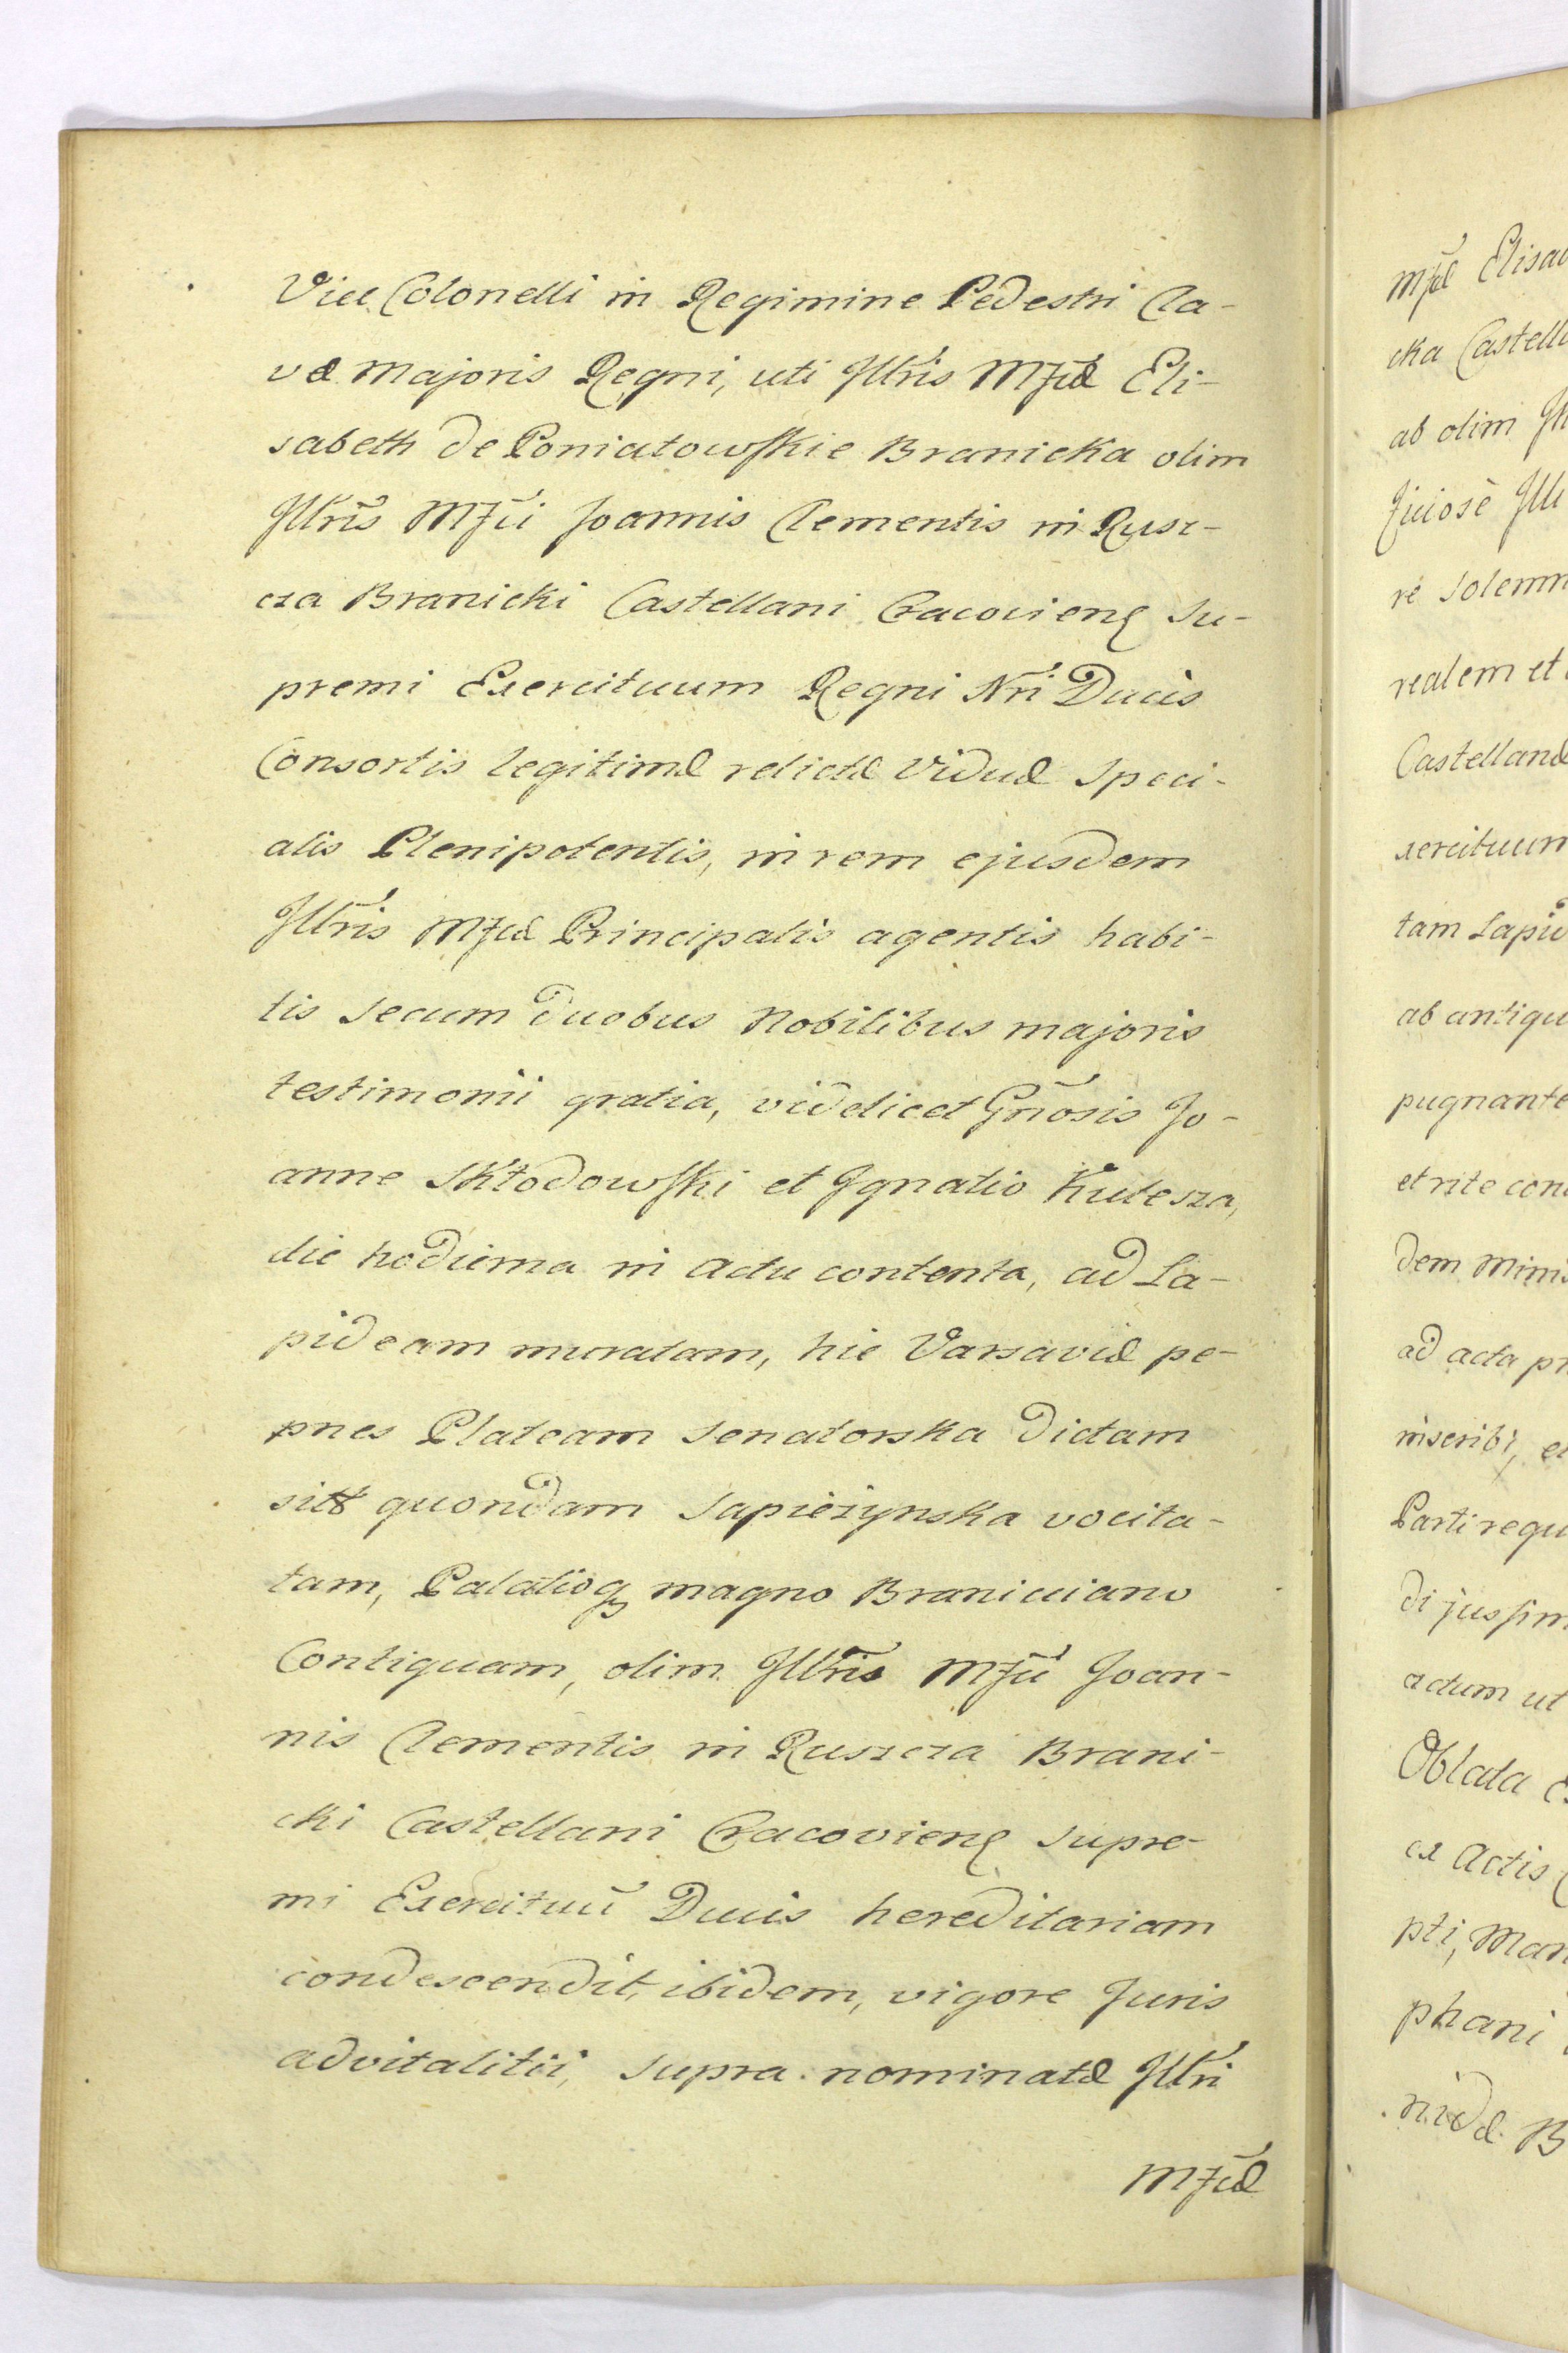 Vice Colonelli in Regimine Pedestri Cla-
væ Majoris Regni, uti Illris Mfcæ Eli-
sabeth de Poniatowskie Branicka olim
Illris Mfci Joannis Clementis in Rusz-
cza Branicki Castellani Cracovieng Su-
premi Exercituum Regni Nri Ducis
Consortis legitimæ relictæ Viduæ Speci-
alis Plenipotentis, in rem ejusdem
Illris Mfcæ Principalis agentis habi-
tis secum duobus Nobilibus majoris
testimonii gratia, videlicet Gnosis Jo-
anne Skłodowski et Ignatio Kulesza,
die hodierna in actu contenta, ad La-
pideam muratam, hic Varsaviæ pe-
pnes Plateam Senatorska dictam
sitt quondam Sapieżynska vocita-
tam, Palatioq magno Braniciano
Contiguam, olim Illris Mfci Joan-
nis Clementis in Ruszcza Brani-
cki Castellani Cracovieng Supre-
mi Exercituũ Ducis hereditariam
condescendit, ibidem, vigore Juris
advitalitii, supra nominatæ Illri
Mfcæ
Mfcæ Elisa
cka Castell
ab olim Ill
ficiose Ill
re solemn
realem et
Castellanæ
xercituum
tam Lapid
ab antiqu
pugnante
et rite con
dem Minis
ad acta pr
inscribi, et
Parti requ
di jussim
actum ut
Oblata
ex Actis
pti, Man
phani
nidæ B